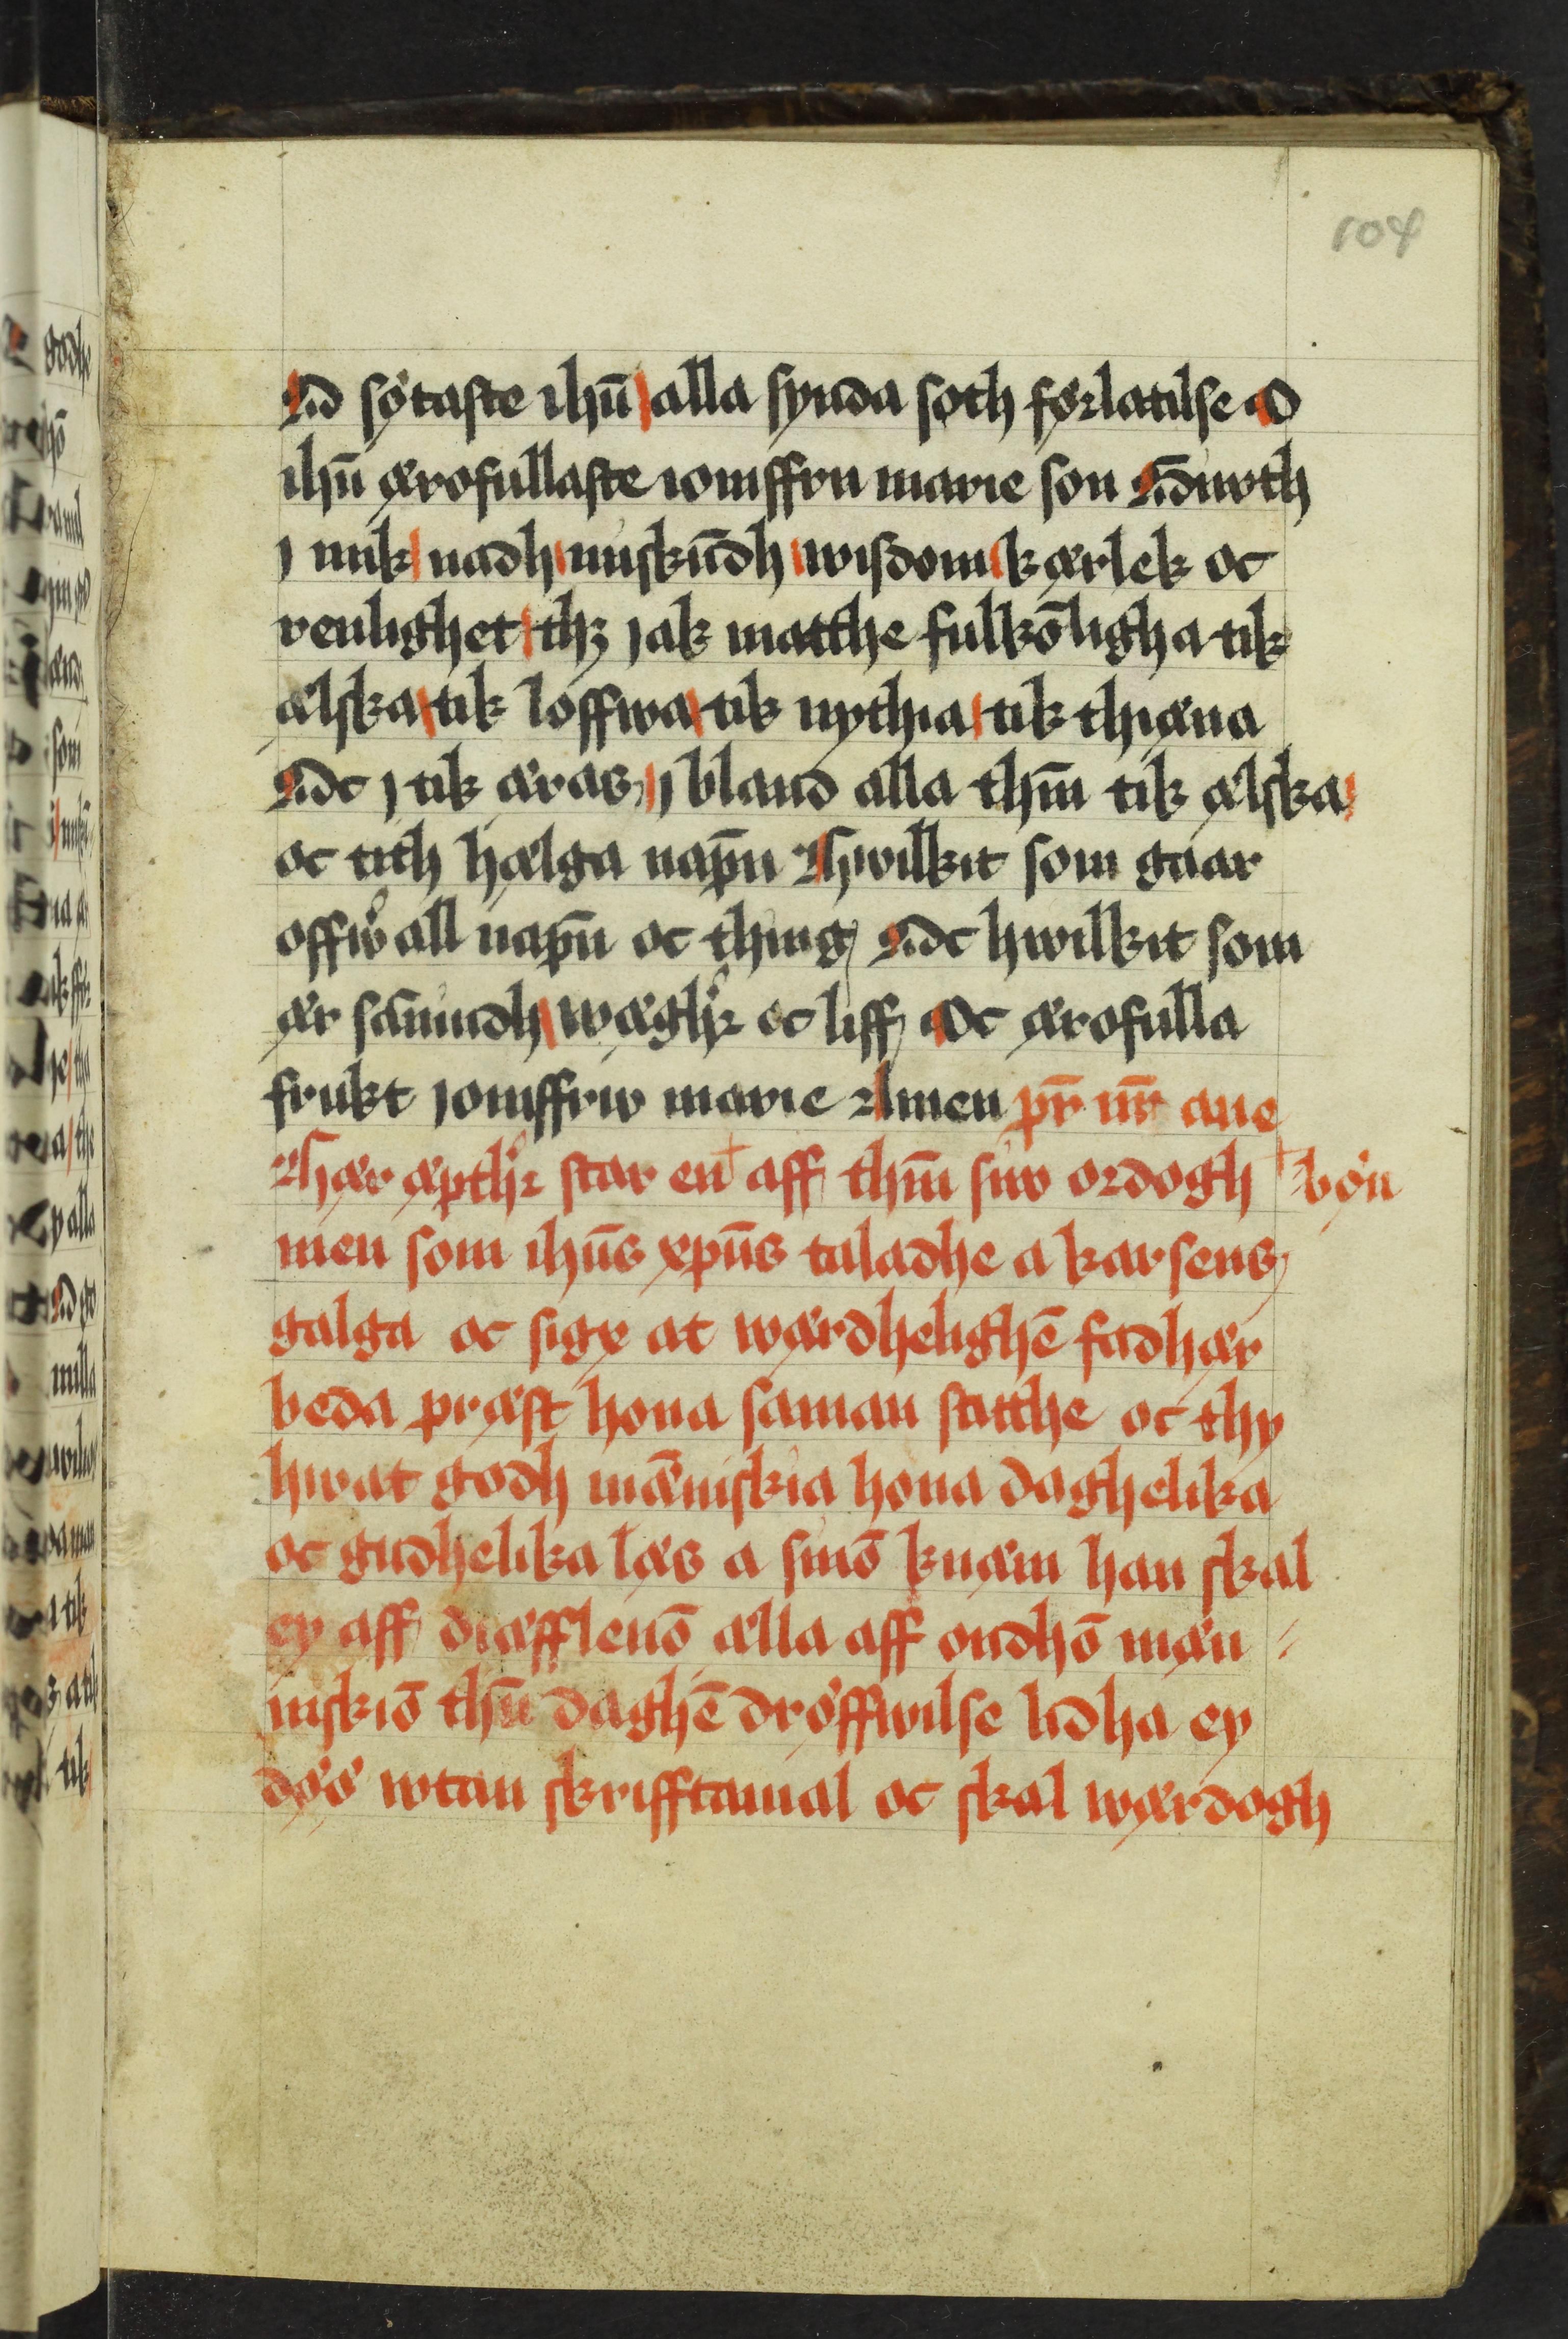 104
O sötaste ihū alla synda soth förlatilse O
ihū ærofullaste iomffru marie son Giuth
j mik nadh miskūdh wisdom kærlek oc
renlighet thz jak matthe fulkōligha tik
ælska tik loffwa tik nythia tik thiæna
Oc j tik æras j bland alla thm̄ tik ælska
oc tith hælga nap̄n Hwilkit som gaar
offwͬ all nap̄n oc thing Oc hwilkit som
ær sānindh wæghͬ oc liff Oc ærofulla
frukt jomffrw marie Amen pr̄ nr̄ aue
Hær æpthͬ star en + aff thm̄ siw ordogh + bön
men som ihūs xpūs taladhe a karsens
galga oc sigx at wærdhelighē fadhær
beda præst hona saman satthe oc thy
hwat godh mæ̅niskia hona daghelika
oc gudhelika læs a sinō knæm han skal
ey aff diæfflenō ælla aff ondhō mæn
niskiō thn̄ daghē dröffwilse lidha ey
döö wtan skrifftamal oc skal wærdogh